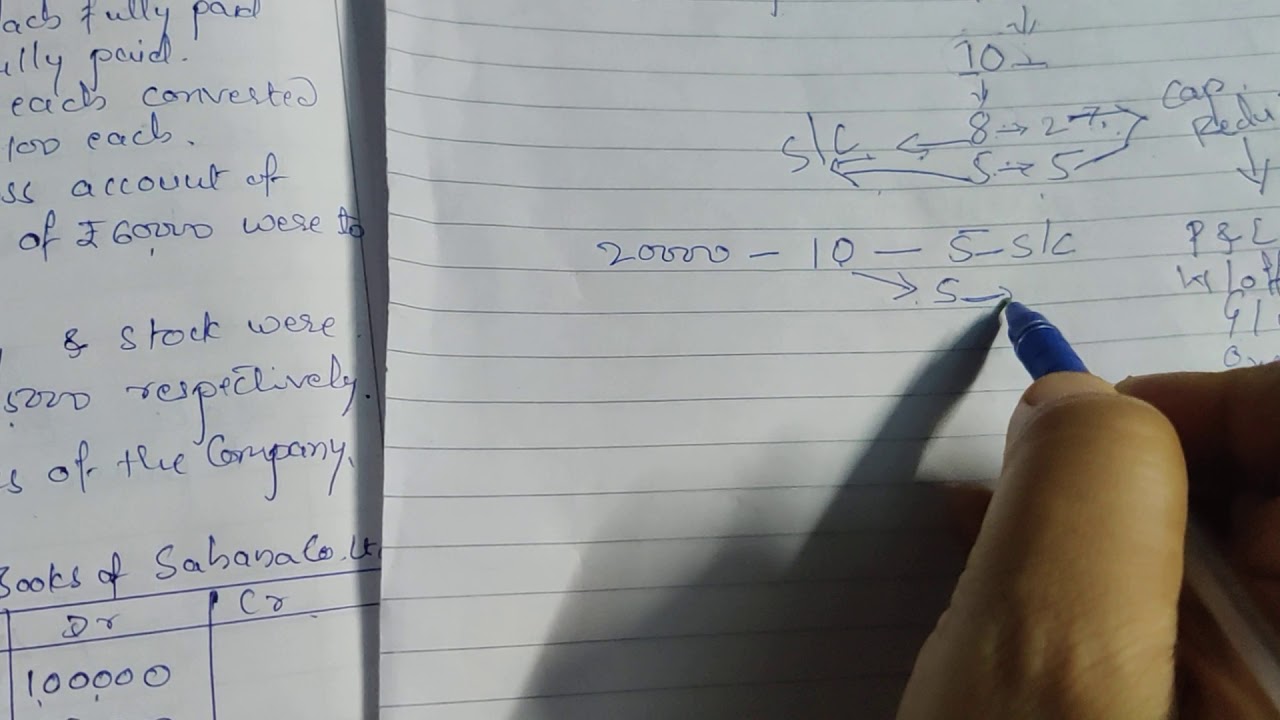 each fully paid
ully paid.
each converted
100 each.
ss account of
of ₹60000 were to
& stock were
5000 respectively.
s of the Company.
Books of Sahana Co. Lt
Dr Cr
100000
10
8 → 2
S/C
5 → 5
Cap.
Redu
20000 - 10 - 5 - S/C
5 →
P & L
W/off
G/